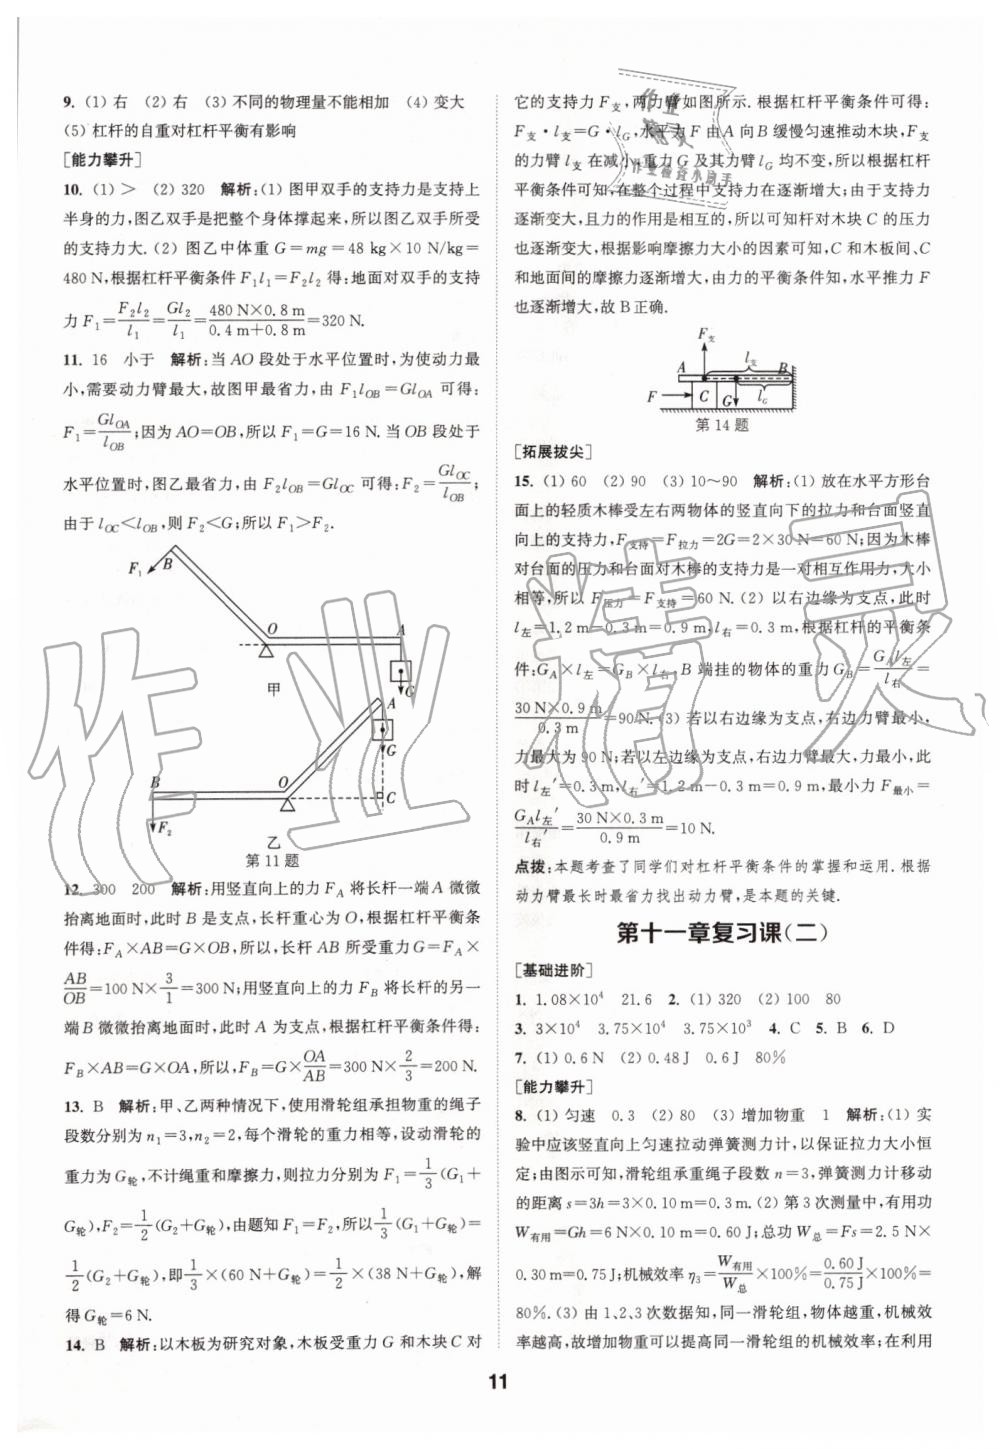 9. (1) 右 (2) 右 (3) 不同的物理量不能相加 (4) 变大
(5) 杠杆的自重对杠杆平衡有影响
[能力攀升]
10. (1) > (2) 320 解析:(1) 图甲双手的支持力是支持上
半身的力,图乙双手是把整个身体撑起来,所以图乙双手所受
的支持力大. (2) 图乙中体重 G=mg=48 kg×10 N/kg=
480 N,根据杠杆平衡条件 F₁l₁=F₂l₂ 得:地面对双手的支持
力 F₁=F₂l₂/l₁=Gl₂/l₁=480 N×0.8 m/0.4 m+0.8 m=320 N.
11. 16 小于 解析:当 AO 段处于水平位置时,为使动力最
小,需要动力臂最大,故图甲最省力,由 F₁l_OB=Gl_OA 可得:
F₁=Gl_OA/l_OB;因为 AO=OB,所以 F₁=G=16 N. 当 OB 段处于
水平位置时,图乙最省力,由 F₂l_OB=Gl_OC 可得:F₂=Gl_OC/l_OB;
由于 l_OC<l_OB,则 F₂<G;所以 F₁>F₂.
F₁ B O A G
甲
A G B O C F₂
乙
第 11 题
12. 300 200 解析:用竖直向上的力 F_A 将长杆一端 A 微微
抬离地面时,此时 B 是支点,长杆重心为 O,根据杠杆平衡条
件得:F_A×AB=G×OB,所以,长杆 AB 所受重力 G=F_A×
AB/OB=100 N×3/1=300 N;用竖直向上的力 F_B 将长杆的另一
端 B 微微抬离地面时,此时 A 为支点,根据杠杆平衡条件得:
F_B×AB=G×OA,所以,F_B=G×OA/AB=300 N×2/3=200 N.
13. B 解析:甲、乙两种情况下,使用滑轮组承担物重的绳子
段数分别为 n₁=3,n₂=2,每个滑轮的重力相等,设动滑轮的
重力为 G轮,不计绳重和摩擦力,则拉力分别为 F₁=1/3(G₁+
G轮),F₂=1/2(G₂+G轮),由题知 F₁=F₂,所以1/3(G₁+G轮)=
1/2(G₂+G轮),即1/3×(60 N+G轮)=1/2×(38 N+G轮),解
得 G轮=6 N.
14. B 解析:以木板为研究对象,木板受重力 G 和木块 C 对
它的支持力 F支,两力臂如图所示. 根据杠杆平衡条件可得:
F支·l支=G·l_G,水平力 F 由 A 向 B 缓慢匀速推动木块,F支
的力臂 l支 在减小,重力 G 及其力臂 l_G 均不变,所以根据杠杆
平衡条件可知,在整个过程中支持力在逐渐增大;由于支持力
逐渐变大,且力的作用是相互的,所以可知杆对木块 C 的压力
也逐渐变大,根据影响摩擦力大小的因素可知,C 和木板间、C
和地面间的摩擦力逐渐增大,由力的平衡条件知,水平推力 F
也逐渐增大,故 B 正确.
F支 A l支 B F C G l_G
第 14 题
[拓展拔尖]
15. (1) 60 (2) 90 (3) 10~90 解析:(1) 放在水平方形台
面上的轻质木棒受左右两物体的竖直向下的拉力和台面竖直
向上的支持力,F支持=F拉力=2G=2×30 N=60 N;因为木棒
对台面的压力和台面对木棒的支持力是一对相互作用力,大小
相等,所以 F压力=F支持=60 N. (2) 以右边缘为支点,此时
l左=1.2 m-0.3 m=0.9 m,l右=0.3 m,根据杠杆的平衡条
件:G_A×l左=G_B×l右,B 端挂的物体的重力 G_B=G_A l左/l右=
30 N×0.9 m/0.3 m=90 N. (3) 若以右边缘为支点,右边力臂最小,
力最大为 90 N;若以左边缘为支点,右边力臂最大,力最小,此
时 l左′=0.3 m,l右′=1.2 m-0.3 m=0.9 m,最小力 F最小=
G_A l左′/l右′=30 N×0.3 m/0.9 m=10 N.
点拨:本题考查了同学们对杠杆平衡条件的掌握和运用. 根据
动力臂最长时最省力找出动力臂,是本题的关键.
第十一章复习课(二)
[基础进阶]
1. 1.08×10⁴ 21.6 2. (1) 320 (2) 100 80
3. 3×10⁴ 3.75×10⁴ 3.75×10³ 4. C 5. B 6. D
7. (1) 0.6 N (2) 0.48 J 0.6 J 80%
[能力攀升]
8. (1) 匀速 0.3 (2) 80 (3) 增加物重 1 解析:(1) 实
验中应该竖直向上匀速拉动弹簧测力计,以保证拉力大小恒
定;由图示可知,滑轮组承重绳子段数 n=3,弹簧测力计移动
的距离 s=3h=3×0.10 m=0.3 m. (2) 第 3 次测量中,有用功
W有用=Gh=6 N×0.10 m=0.60 J;总功 W总=Fs=2.5 N×
0.30 m=0.75 J;机械效率 η₃=W有用/W总×100%=0.60 J/0.75 J×100%=
80%. (3) 由 1、2、3 次数据知,同一滑轮组,物体越重,机械效
率越高,故增加物重可以提高同一滑轮组的机械效率;在利用
11
作业精灵
作业
精灵
作业做证小助手